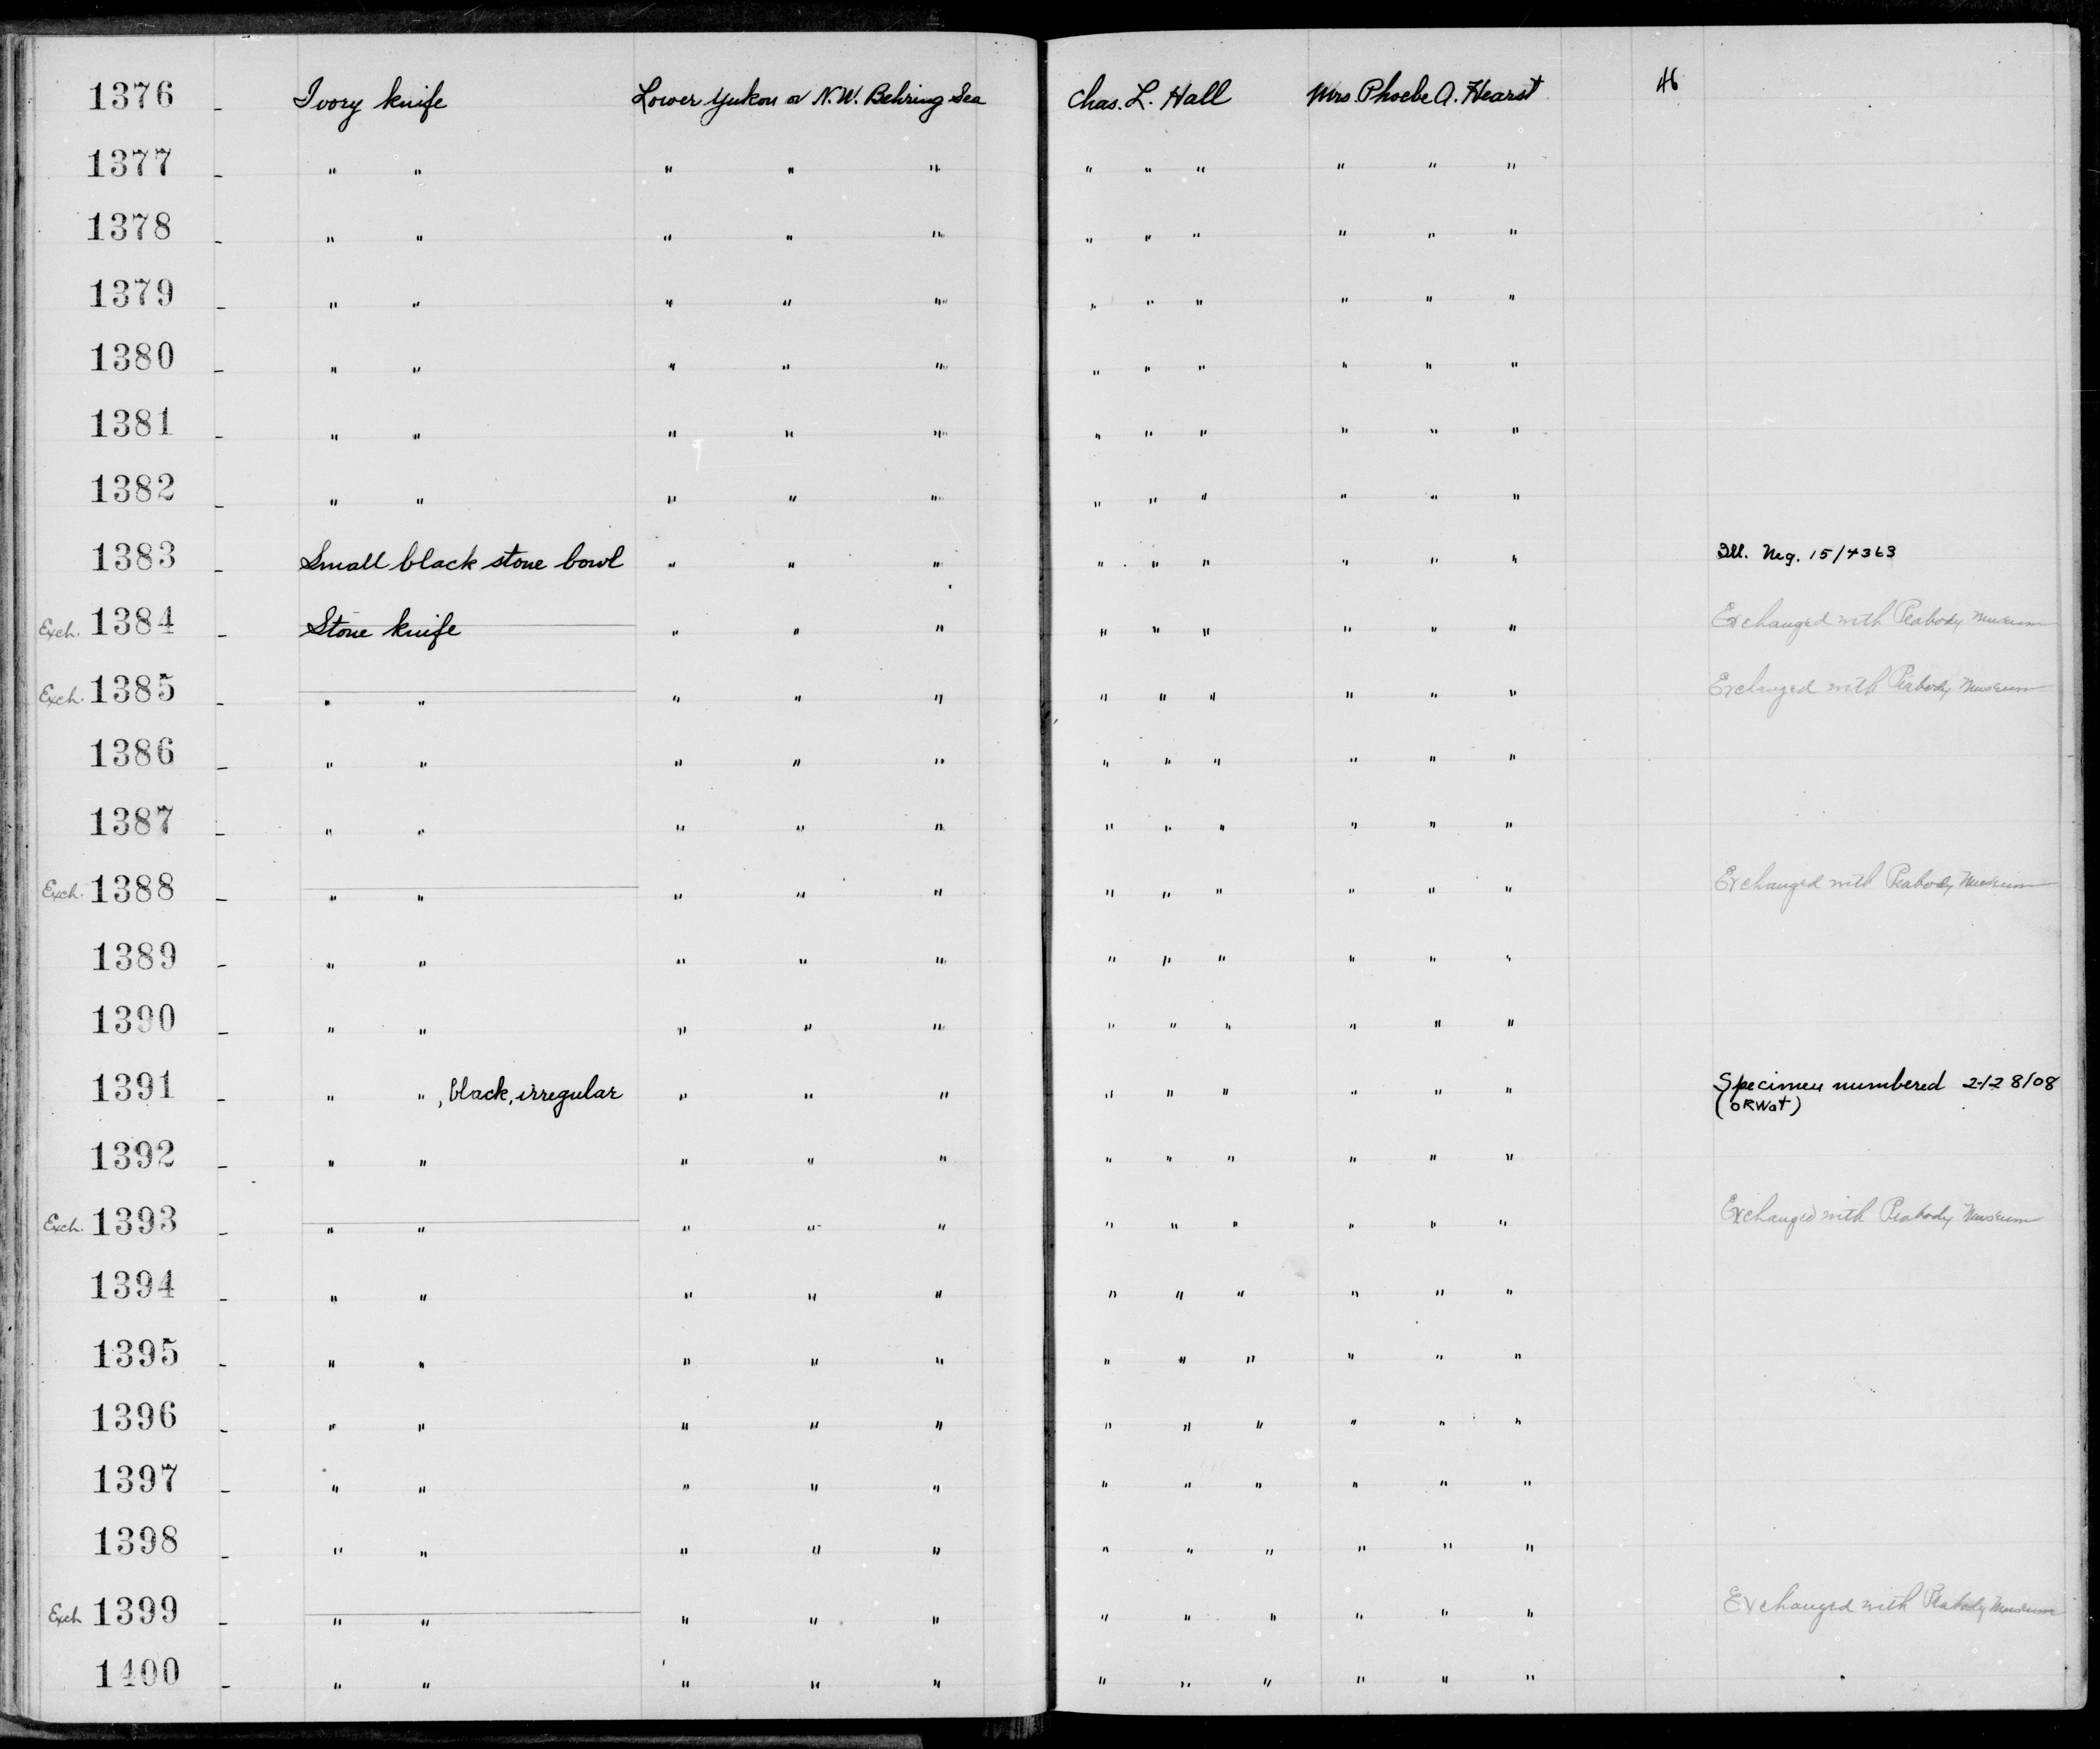 1376 - Ivory knife Lower Yukon or N.W. Behring Sea Chas. L. Hall Mrs. Phoebe A. Hearst 46
1377 - " " " " " " " " " " "
1378 - " " " " " " " " " " "
1379 - " " " " " " " " " " "
1380 - " " " " " " " " " " "
1381 - " " " " " " " " " " "
1382 - " " " " " " " " " " "
1383 - Small black stone bowl " " " " " " " " " Ill. Neg. 15/4363
Exch. 1384 - Stone knife " " " " " " " " " Exchanged with Peabody Museum
Exch. 1385 - " " " " " " " " " " " Exchanged with Peabody Museum
1386 - " " " " " " " " " " "
1387 - " " " " " " " " " " "
Exch. 1388 - " " " " " " " " " " " Exchanged with Peabody Museum
1389 - " " " " " " " " " " "
1390 - " " " " " " " " " " "
1391 - " ", black, irregular " " " " " " " " " Specimen numbered 2-128108
(ORWat)
1392 - " " " " " " " " " " "
Exch. 1393 - " " " " " " " " " " " Exchanged with Peabody Museum
1394 - " " " " " " " " " " "
1395 - " " " " " " " " " " "
1396 - " " " " " " " " " " "
1397 - " " " " " " " " " " "
1398 - " " " " " " " " " " "
Exch 1399 - " " " " " " " " " " " Exchanged with Peabody Museum
1400 - " " " " " " " " " " "